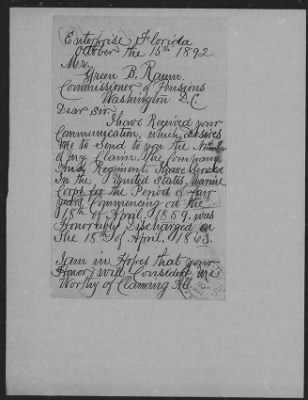 Enterprise Florida
October the 15th 1892.
Mr.
Green B. Raum.
Commissioner of Pensions
Washington D.C
Dear Sir.
I have Received your
Communication, which desires
me to send to you the Number
of my Claim. The Company
and Regiment. I have Served
in the United States, Marine
Corps for the Period of four
years Commencing on the
18th of April 1859. was
Honorably Discharged on
the 18th of April, 1863.
I am in Hopes that your
Honor will Consider me
Worthy of Claming All